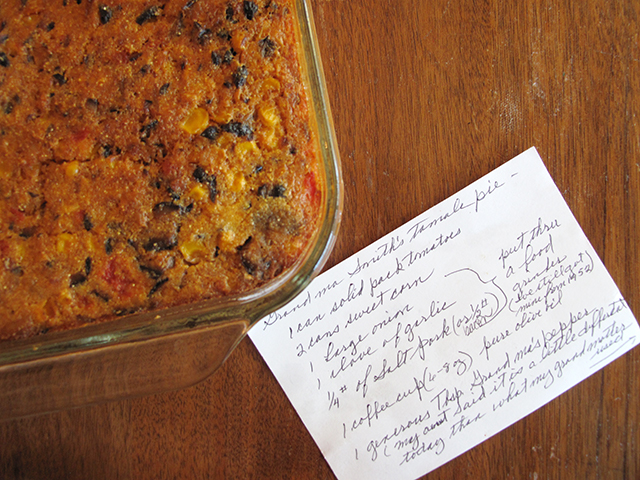 Grandma Smith's Tamale pie -
1 can solid pack tomatoes
2 cans sweet corn
1 large onion
1 clove of garlic
1/4 # of salt pork (or 1/2 #
put thru
a food
grinder
(I've still got
mine from 1952)
1 coffee cup (6-8 oz) pure olive oil
1 generous Tbsp Grandma's pepper
(my aunt said it is a little different
today than what my grandmother
used)